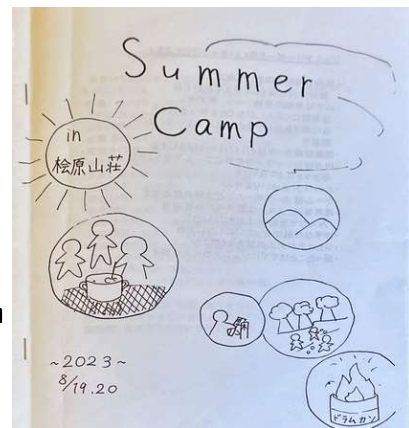 Summer
Camp
in
桧原山荘
~2023~
8/19.20
ドラムカン